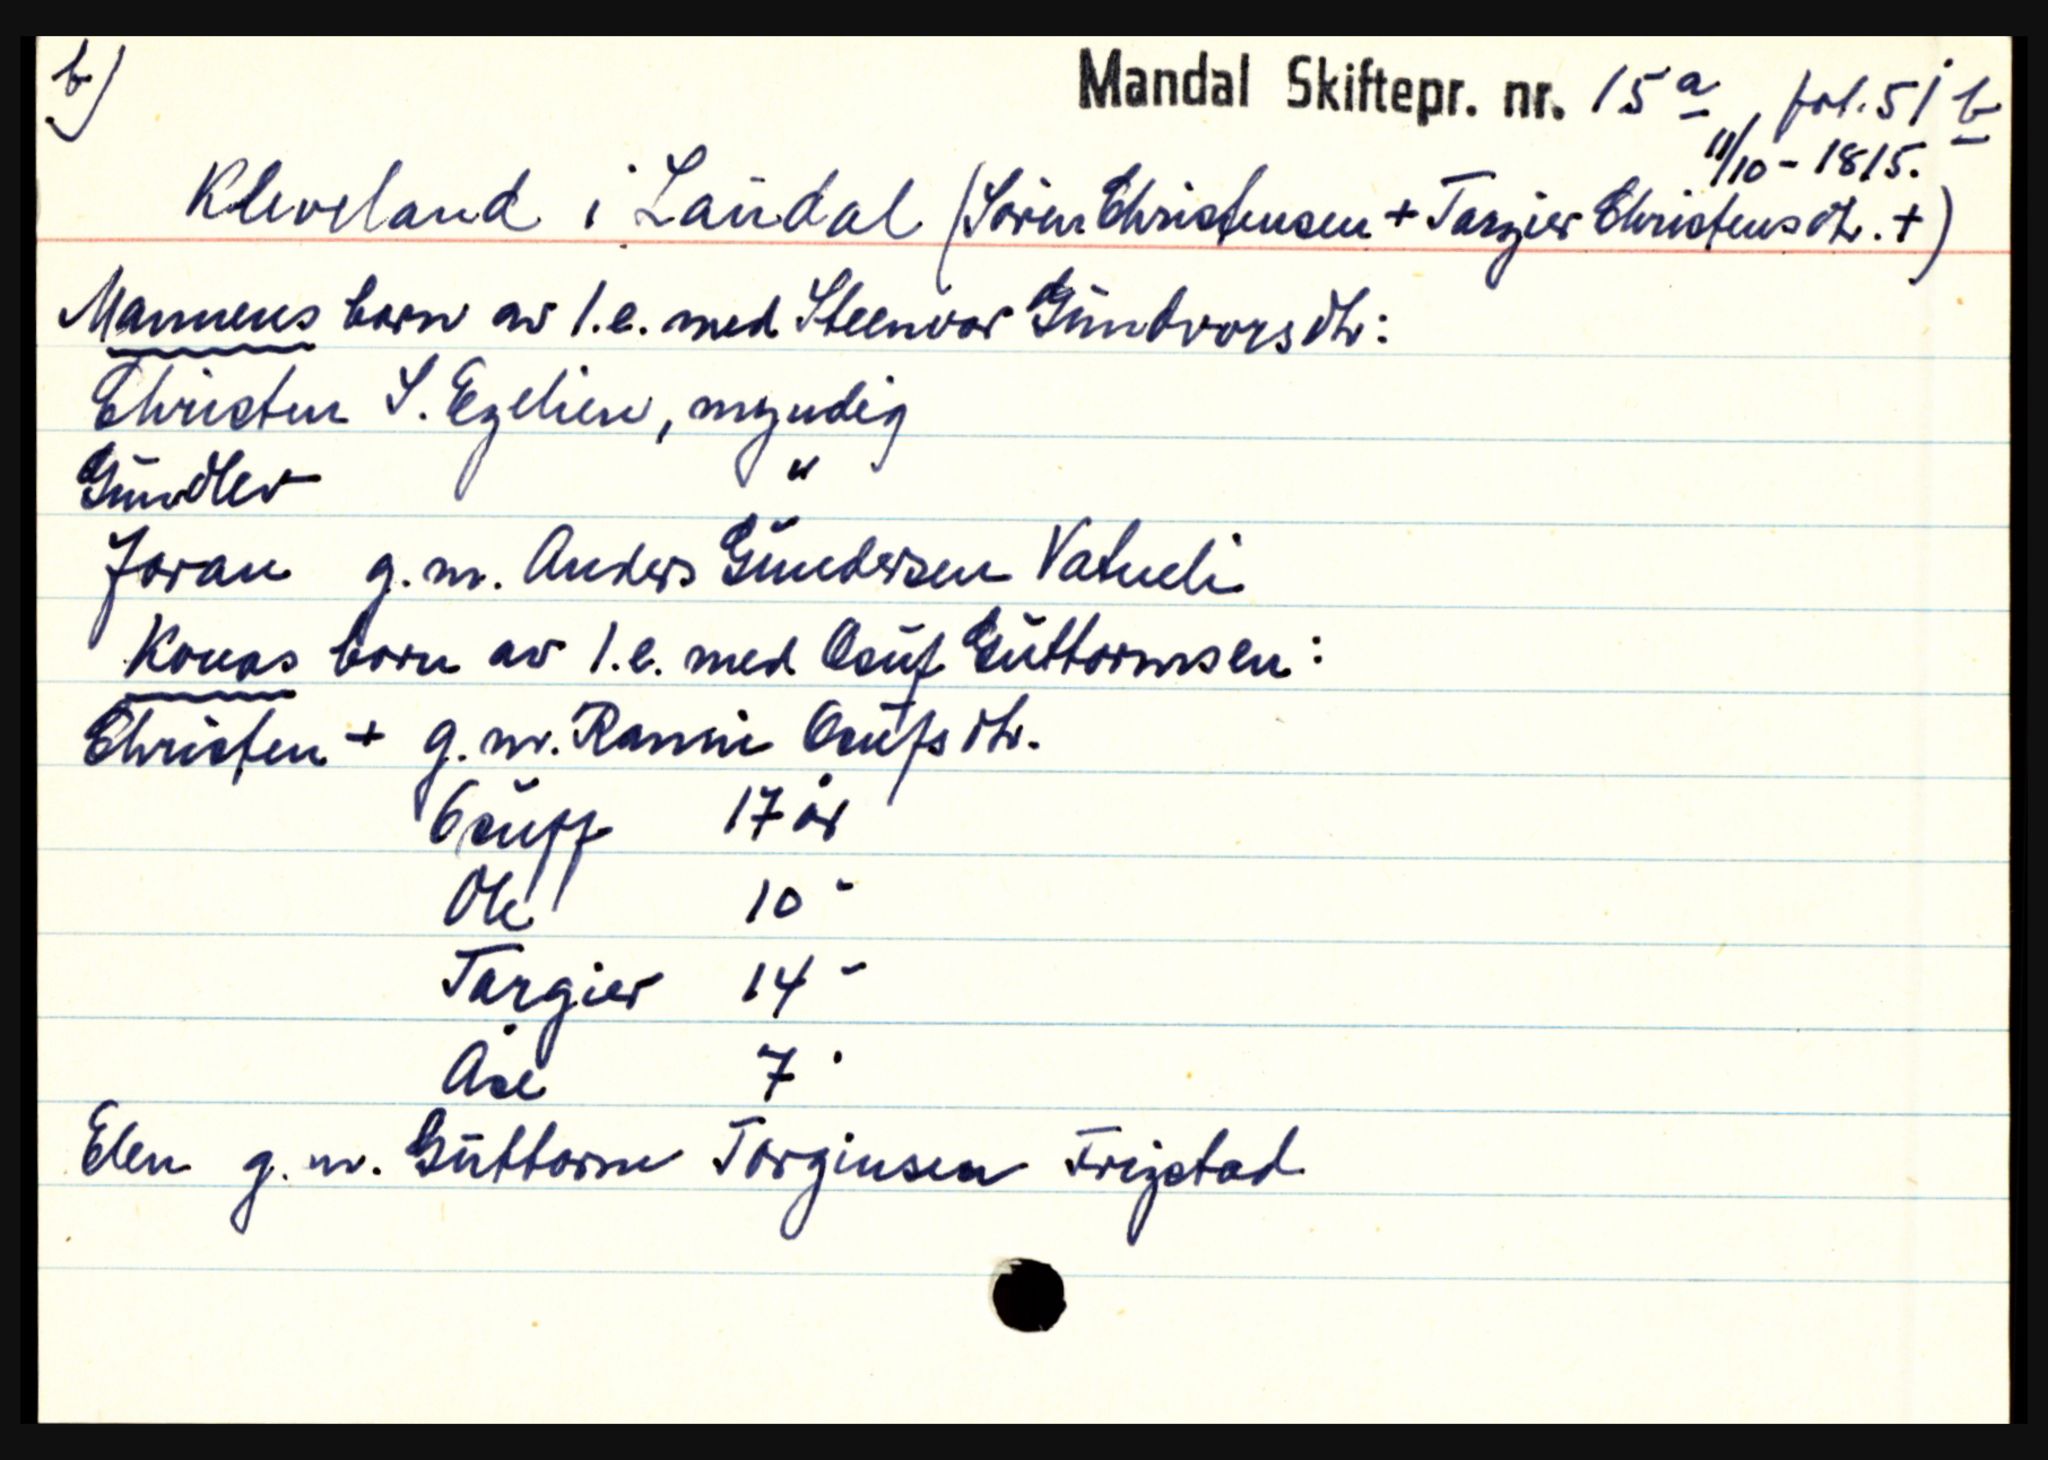 b)
Mandal Skiftepr. nr. 15a, fol. 51b
11/10 - 1815.
Kleveland i Laudal (Sören Christensen + Targier Christensdtr. +)
Mannens born av 1.e. med Steenvor Gundvorsdtr:
Christen S. Egelien, myndig
Gundler "
Joran g.m. Anders Gundersen Vatneli
Konas born av 1.e. med Osuf Guttormsen:
Christen + g.m. Rannie Osufsdtr.
Osuff 17 år
Ole 10 -
Targier 14 -
Åse 7 -
Elen g.m. Guttorm Torginsen Frigstad